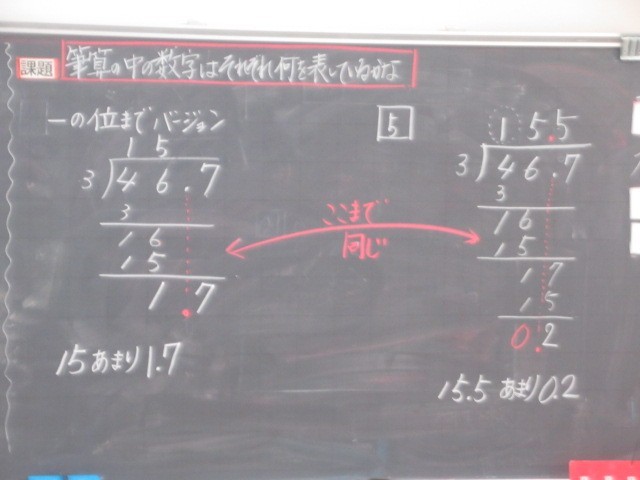 課題
筆算の中の数字はそれぞれ何を表しているかな
一の位までバージョン
15
3)46.7
3
16
15
1.7
15あまり1.7
ここまで
同じ
5
15.5
3)46.7
3
16
15
17
15
0.2
15.5あまり0.2